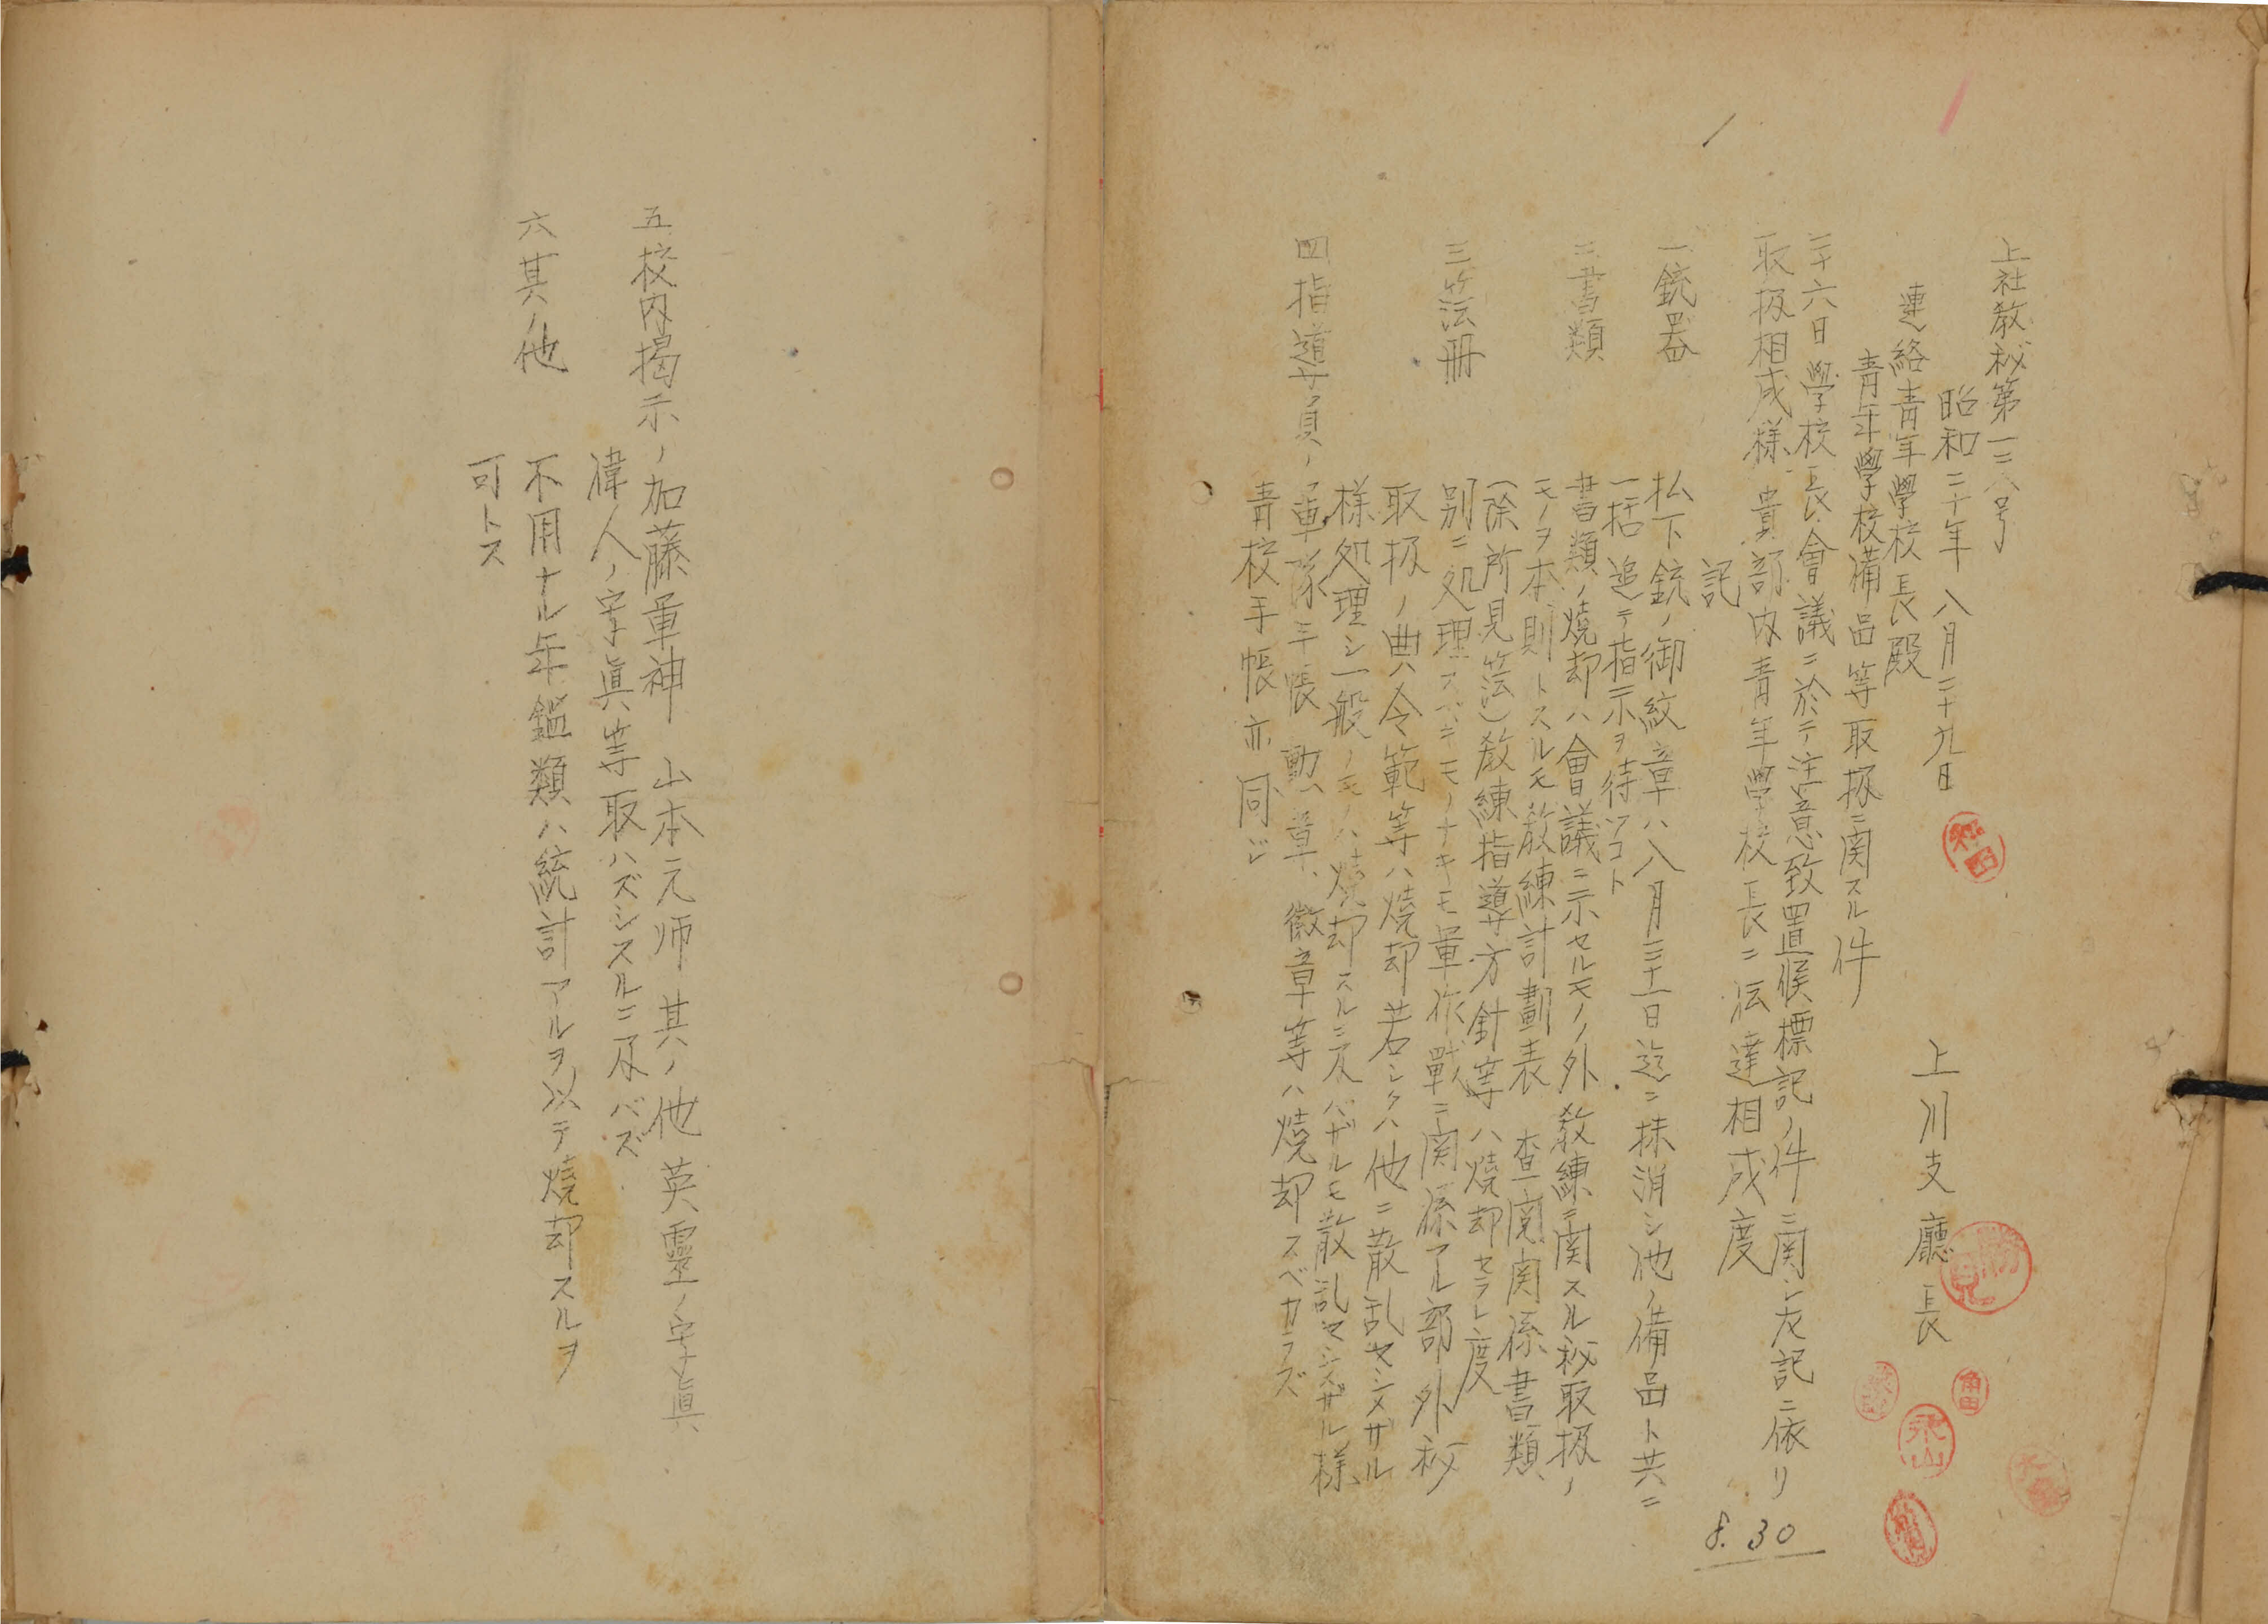 上社教秘第一二八号
昭和二十年八月二十九日
上川支廳長
連絡青年學校長殿
青年學校備品等取扱ニ関スル件
二十六日學校長會議ニ於テ注意致置候標記ノ件ニ関シ左記ニ依リ
取扱相成様貴部内青年學校長ニ伝達相成度
記
一銃器
払下銃ノ御紋章ハ八月三十一日迄ニ抹消シ他ノ備品ト共ニ
一括追テ指示ヲ待ツコト
二書類
書類ノ燒却ハ會議ニ示セルモノノ外教練ニ関スル秘取扱ノ
モノヲ本則トスルモ教練計劃表 査閲関係書類、
(除所見簿)教練指導方針等ハ燒却セラレ度
三簿冊
別ニ処理スベキモノナキモ軍作戰ニ関係アル部外秘
取扱ノ典令範等ハ燒却若シクハ他ニ散乱セシメザル
様処理シ一般ノモノハ燒却スルニ及バザルモ散乱セシメザル様
四指導員ノ
軍隊手帳 勳章、徽章等ハ燒却スベカラズ
青校手帳亦同ジ
8.30
五校内揭示ノ
加藤軍神 山本元帥 其ノ他英靈ノ寫眞
偉人ノ寫眞等取ハズシスルニ及バズ
六其ノ他
不用ナル年鑑類ハ統計アルヲ以テ燒却スルヲ
可トス
勝見
角田
永山